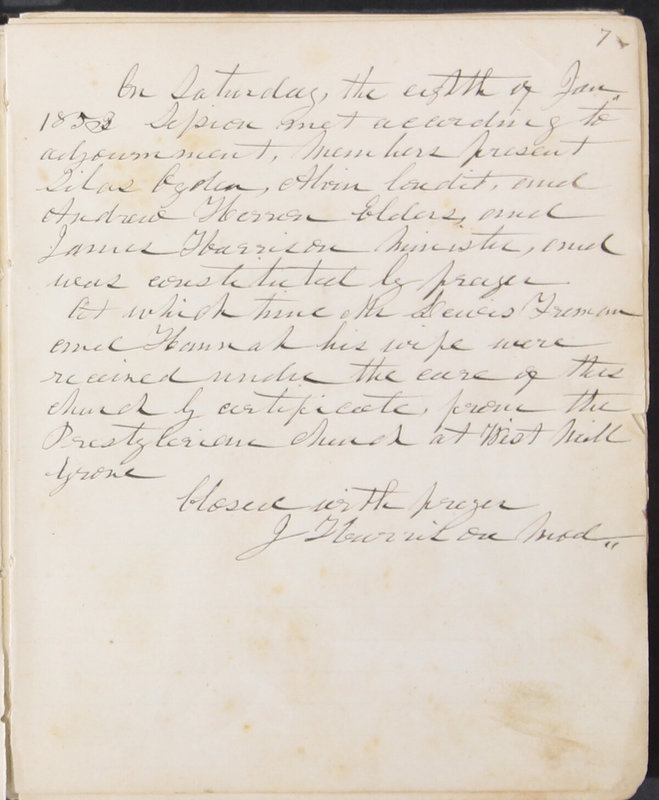 7
On Saturday, the eighth of Jan"
1853 Session met according to
adjournment, Members present
Silas Ogden, Alvin Condit, and
Andrew Herron Elders, and
James Harrison Minister, and
was constituted by prayer
At which time Mr Lewis Freman
and Hannah his wife were
received under the care of this
church by certificate, from the
Presbyterian church at West Mill
Grove
Closed with prayer
J Harrison Mod"